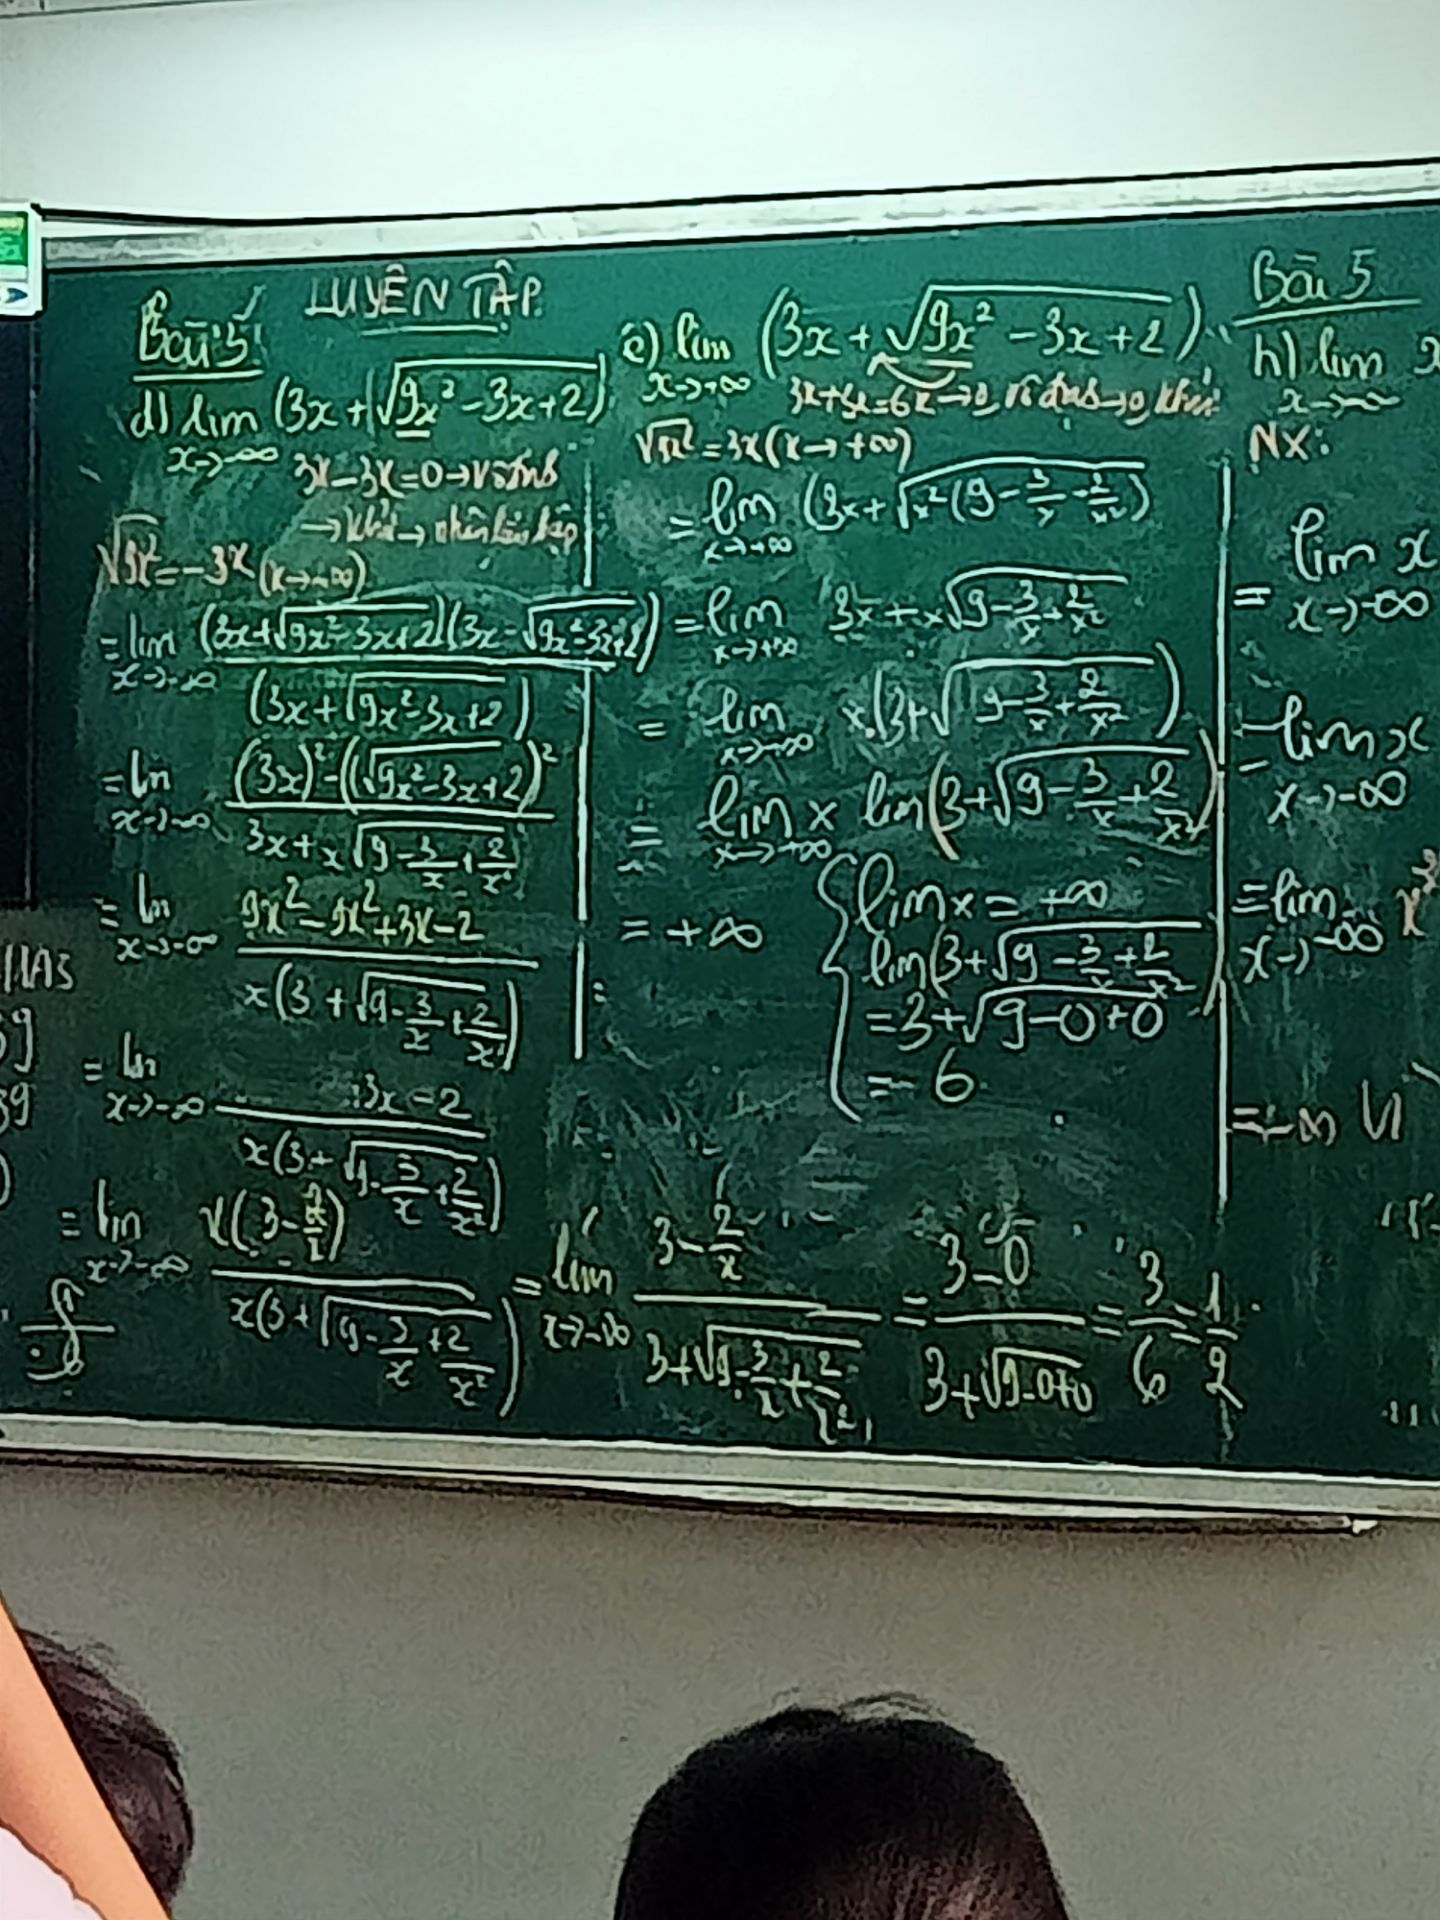 LUYỆN TẬP
Bài 5
d) lim (3x + √(9x² - 3x + 2))
x → -∞
3x - 3x = 0 → vô định
→ khử → nhân liên hợp
√9x² = -3x (x → -∞)
= lim (3x + √(9x² - 3x + 2))(3x - √(9x² - 3x + 2))
x → -∞
(3x + √(9x² - 3x + 2))
= lim (3x)² - (√(9x² - 3x + 2))²
x → -∞
3x + x√(9 - 3/x + 2/x²)
= lim 9x² - 9x² + 3x - 2
x → -∞
x(3 + √(9 - 3/x + 2/x²))
= lim 3x - 2
x → -∞
x(3 + √(9 - 3/x + 2/x²))
= lim x(3 - 2/x)
x → -∞
x(3 + √(9 - 3/x + 2/x²))
= lim (3 - 2/x) / (3 + √(9 - 3/x + 2/x²)) = (3 - 0) / (3 + √(9 - 0 + 0)) = 3/6 = 1/2
x → -∞
c) lim (3x + √(9x² - 3x + 2))
x → +∞
3x + 3x = 6x
√9x² = 3x (x → +∞)
= lim (3x + √(x²(9 - 3/x - 2/x²)))
x → +∞
= lim 3x + x√(9 - 3/x + 2/x²)
x → +∞
= lim x.(3 + √(9 - 3/x + 2/x²))
x → +∞
= lim x lim (3 + √(9 - 3/x + 2/x²))
x → +∞
= +∞
lim x = +∞
lim (3 + √(9 - 3/x + 2/x²))
= 3 + √(9 - 0 + 0)
= 6
Bài 5
h) lim
x → -∞
NX:
= lim x
x → -∞
= lim x
x → -∞
= lim x³
x → -∞
= -∞ Vì